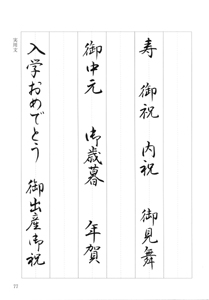 寿　御祝　内祝　御見舞
御中元　御歳暮　年賀
入学おめでとう　御出産御祝
実用文